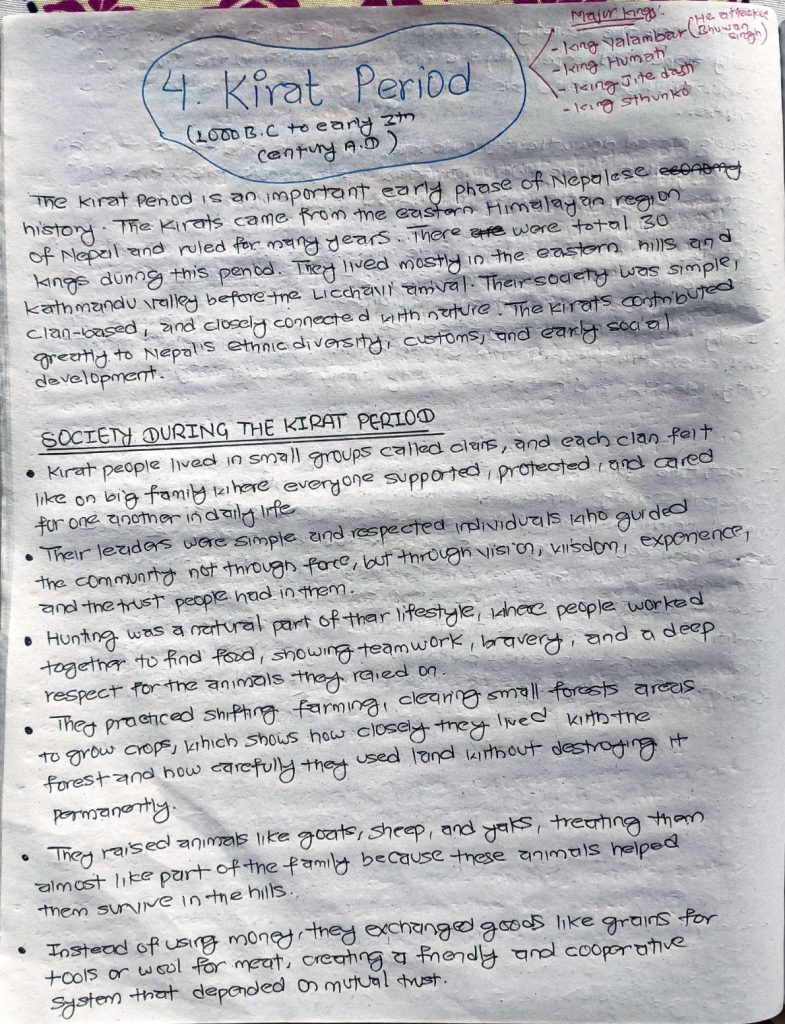 Major kings:
- king Yalambar (He attacked Bhuwan singh)
- king Humati
- king Jite dasti
- king Sthunko
4. Kirat Period
(1000 B.C to early 3th
century A.D)
The Kirat Period is an important early phase of Nepalese economy
history. The Kirats came from the eastern Himalayan region
of Nepal and ruled for many years. There are were total 30
kings during this period. They lived mostly in the eastern hills and
Kathmandu valley before the Licchavi arrival. Their society was simple,
clan-based, and closely connected with nature. The Kirats contributed
greatly to Nepal's ethnic diversity, customs, and early social
development.
SOCIETY DURING THE KIRAT PERIOD
• Kirat people lived in small groups called clans, and each clan felt
like on big family where everyone supported, protected, and cared
for one another in daily life
• Their leaders were simple and respected individuals who guided
the community not through force, but through vision, wisdom, experience,
and the trust people had in them.
• Hunting was a natural part of their lifestyle, where people worked
together to find food, showing teamwork, bravery, and a deep
respect for the animals they relied on.
• They practiced shifting farming, clearing small forests areas
to grow crops, which shows how closely they lived with the
forest and how carefully they used land without destroying it
permanently.
• They raised animals like goats, sheep, and yaks, treating them
almost like part of the family because these animals helped
them survive in the hills.
• Instead of using money, they exchanged goods like grains for
tools or wool for meat, creating a friendly and cooperative
system that depended on mutual trust.